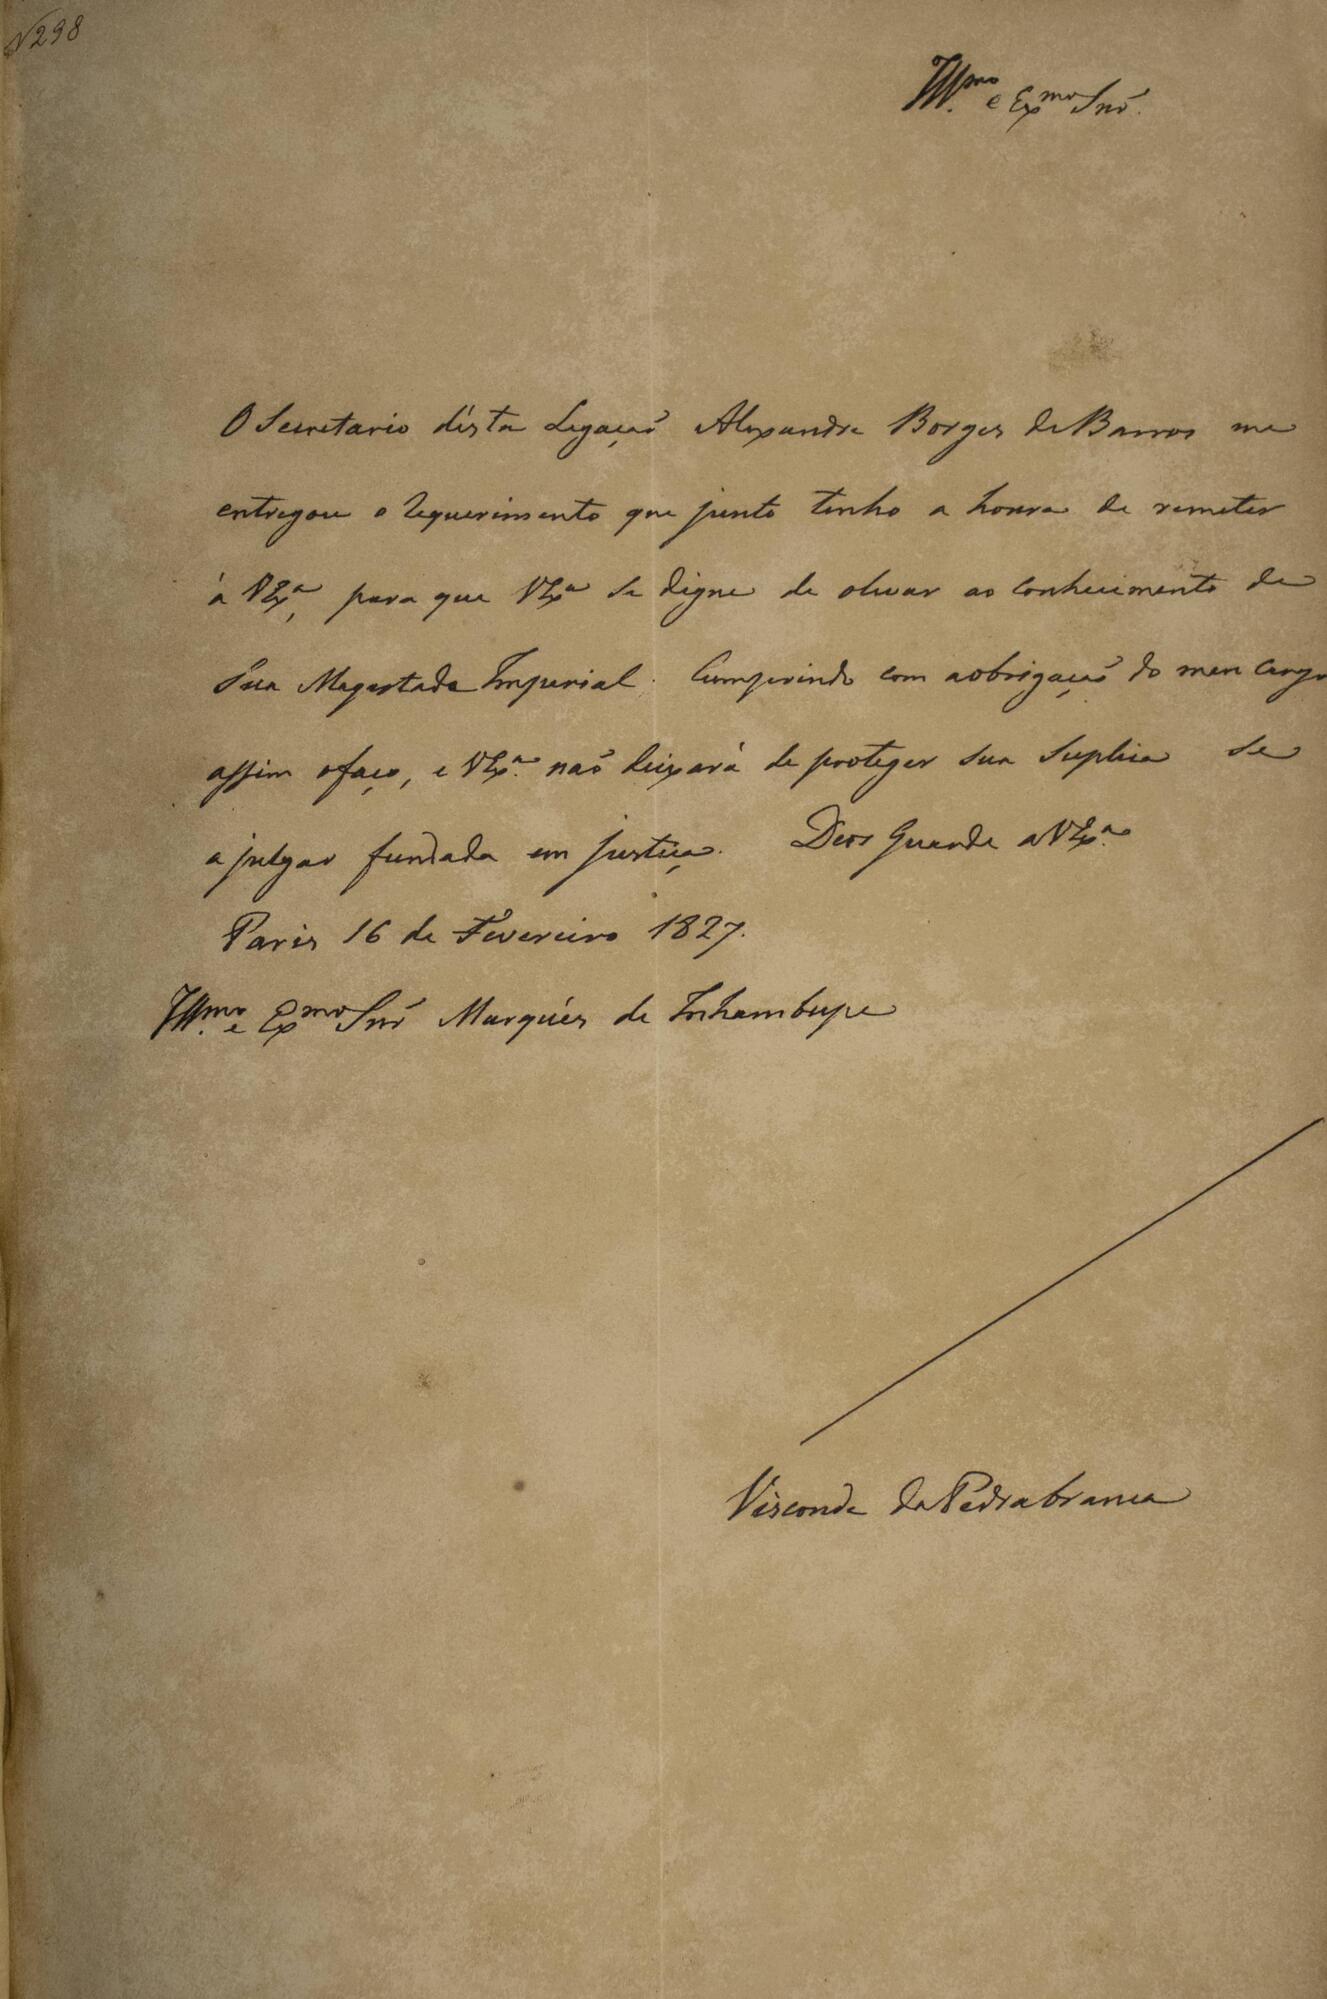 N 298
Illmo. e Exmo Snr.
O Secretario désta Legação Alexandre Borges de Barros me
entregou o requerimento que junto tenho a honra de remeter
à VExa, para que VExa se digne de olevar ao conhecimento de
Sua Magestade Imperial. Cumprindo com aobrigação do meu cargo
assim ofaço, e VExa. não deixará de proteger sua suplica se
a julgar fundada em justiça. Deos Guarde aVExa.
Paris 16 de Fevereiro 1827.
Illmo. e Exmo Snr Marqués de Inhambupe
Visconde da Pedrabranca